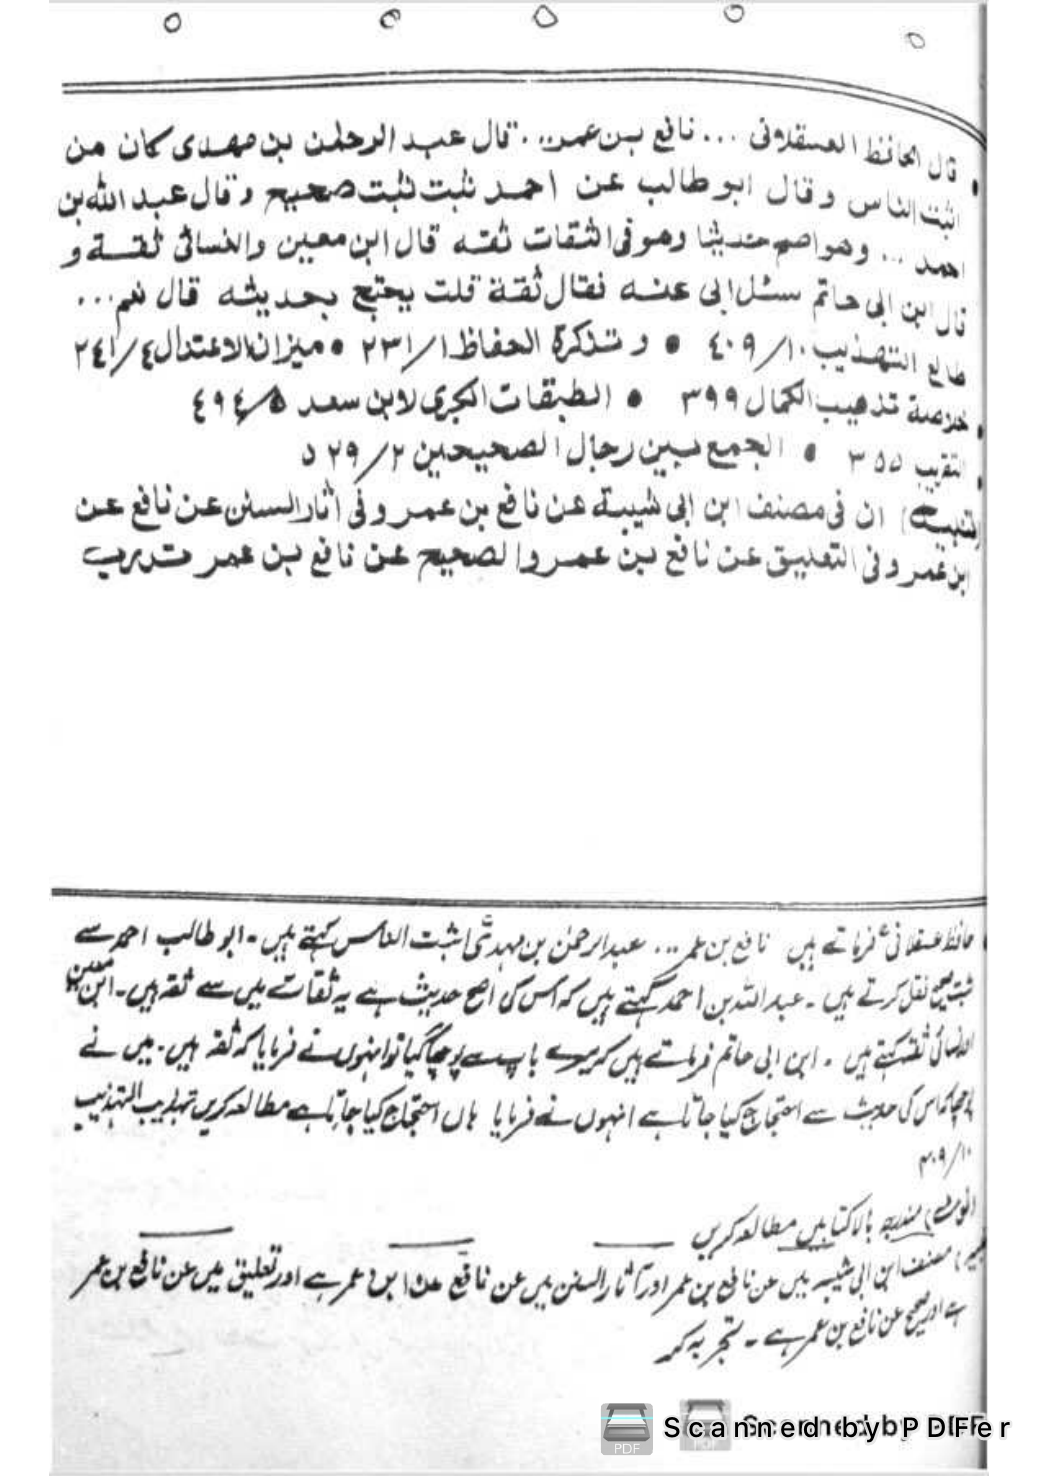 • قال الحافظ العسقلانی ... نافع بن عمر... قال عبد الرحمٰن بن مهدی کان من
اثبت الناس وقال ابو طالب عن احمد ثبت ثبت صحیح وقال عبد الله بن
احمد ... وهو اصح حدیثا وهو فی الثقات ثقه قال ابن معین والنسائی ثقة و
قال ابن ابی حاتم سئل ابی عنه فقال ثقة قلت یحتج بحدیثه قال نعم...
طالع التهذیب ۱۰/۴۰۹ • و تذکرة الحفاظ ۱/۲۳۱ • میزان الاعتدال ۴/۲۴۱
• خلاصة تذهیب الکمال ۳۹۹ • الطبقات الکبری لابن سعد ۵/۴۹۴
• التقریب ۳۵۵ • الجمع بین رجال الصحیحین ۲/۵۲۹
(تنبیه) ان فی مصنف ابن ابی شیبة عن نافع بن عمر وفی اثار السنن عن نافع عن
ابن عمر وفی التعلیق عن نافع بن عمر والصحیح عن نافع بن عمر تدرب
حافظ عسقلانیؒ فرماتے ہیں نافع بن عمر... عبدالرحمٰن بن مہدیؒ اثبت الناس کہتے ہیں۔ ابو طالب احمد سے
ثبت صحیح نقل کرتے ہیں۔ عبداللہ بن احمد کہتے ہیں کہ اس کی اصح حدیث ہے یہ ثقات میں سے ثقہ ہیں۔ ابن معین
اور نسائی ثقہ کہتے ہیں۔ ابن ابی حاتم فرماتے ہیں کہ میرے باپ سے پوچھا گیا تو انہوں نے فرمایا کہ ثقہ ہیں۔ میں نے
پوچھا کہ اس کی حدیث سے احتجاج کیا جاتا ہے انہوں نے فرمایا ہاں احتجاج کیا جاتا ہے مطالعہ کریں تہذیب التہذیب
۱۰/۴۰۹
(نوٹ) مندرجہ بالا کتابیں مطالعہ کریں
مصنف ابن ابی شیبہ میں عن نافع بن عمر اور آثار السنن میں عن نافع عن ابن عمر ہے اور تعلیق میں عن نافع بن عمر
ہے اور صحیح عن نافع بن عمر ہے۔ تجربہ کر
Scanned by PDFer